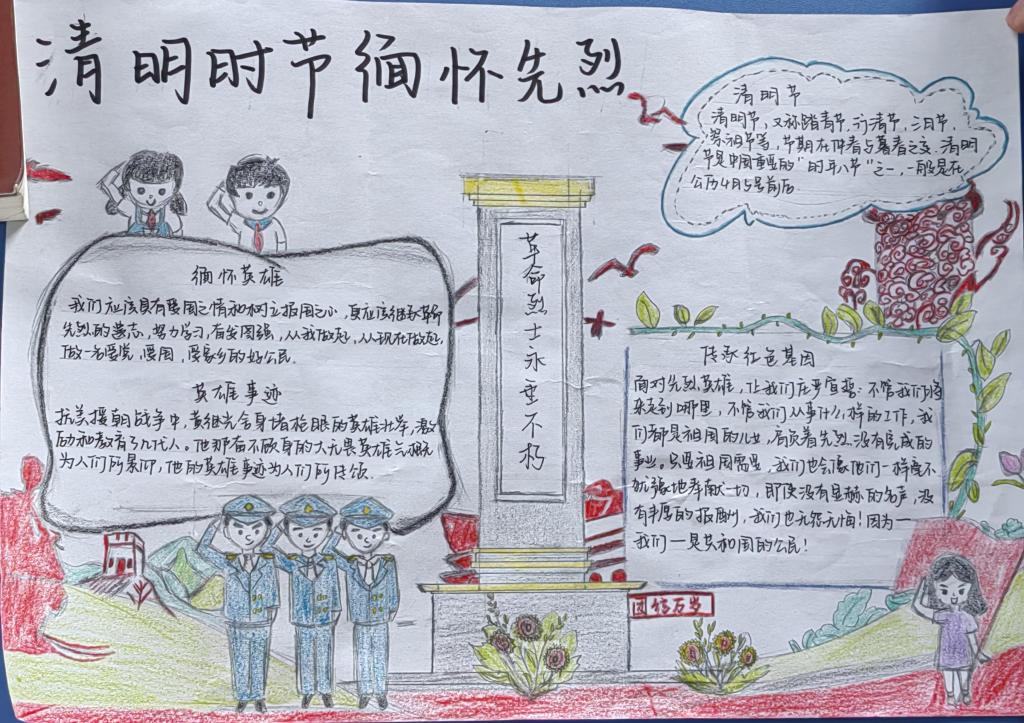 清明时节缅怀先烈
清明节
清明节，又称踏青节、行清节、三月节、
祭祖节等，节期在仲春与暮春之交。清明
节是中国重要的"的年八节"之一，一般是在
公历4月5号前后.
缅怀英雄
我们应该具有爱国之情和树立报国之心，更应该继承革命
先烈的遗志，努力学习，奋发图强，从我做起，从现在做起，
做一名爱党，爱国，爱家乡的好公民.
英雄事迹
抗美援朝战争中，黄继光舍身堵枪眼的英雄壮举，激
励和教育了几代人。他那奋不顾身的大无畏英雄气概
为人们所景仰，他的英雄事迹为人们所传颂.
革命烈士永垂不朽
传承红色基因
面对先烈英雄，让我们庄严宣誓：不管我们将
来走到哪里，不管我们从事什么样的工作，我
们都是祖国的儿女，肩负着先烈没有完成的
事业。只要祖国需要，我们也会像他们一样毫不
犹豫地奉献一切，即使没有显赫的名声，没
有丰厚的报酬，我们也无怨无悔！因为一
我们一是共和国的公民！
团结万岁